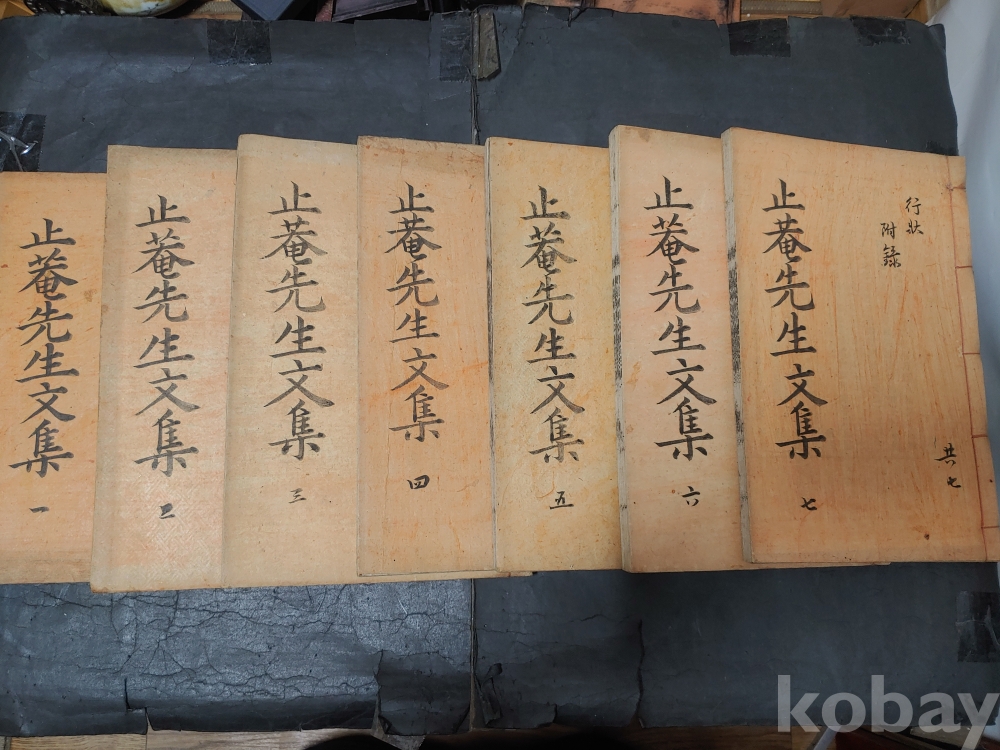 止菴先生文集 一
止菴先生文集 二
止菴先生文集 三
止菴先生文集 四
止菴先生文集 五
止菴先生文集 六
止菴先生文集 七
行狀
附錄
共七
kobay